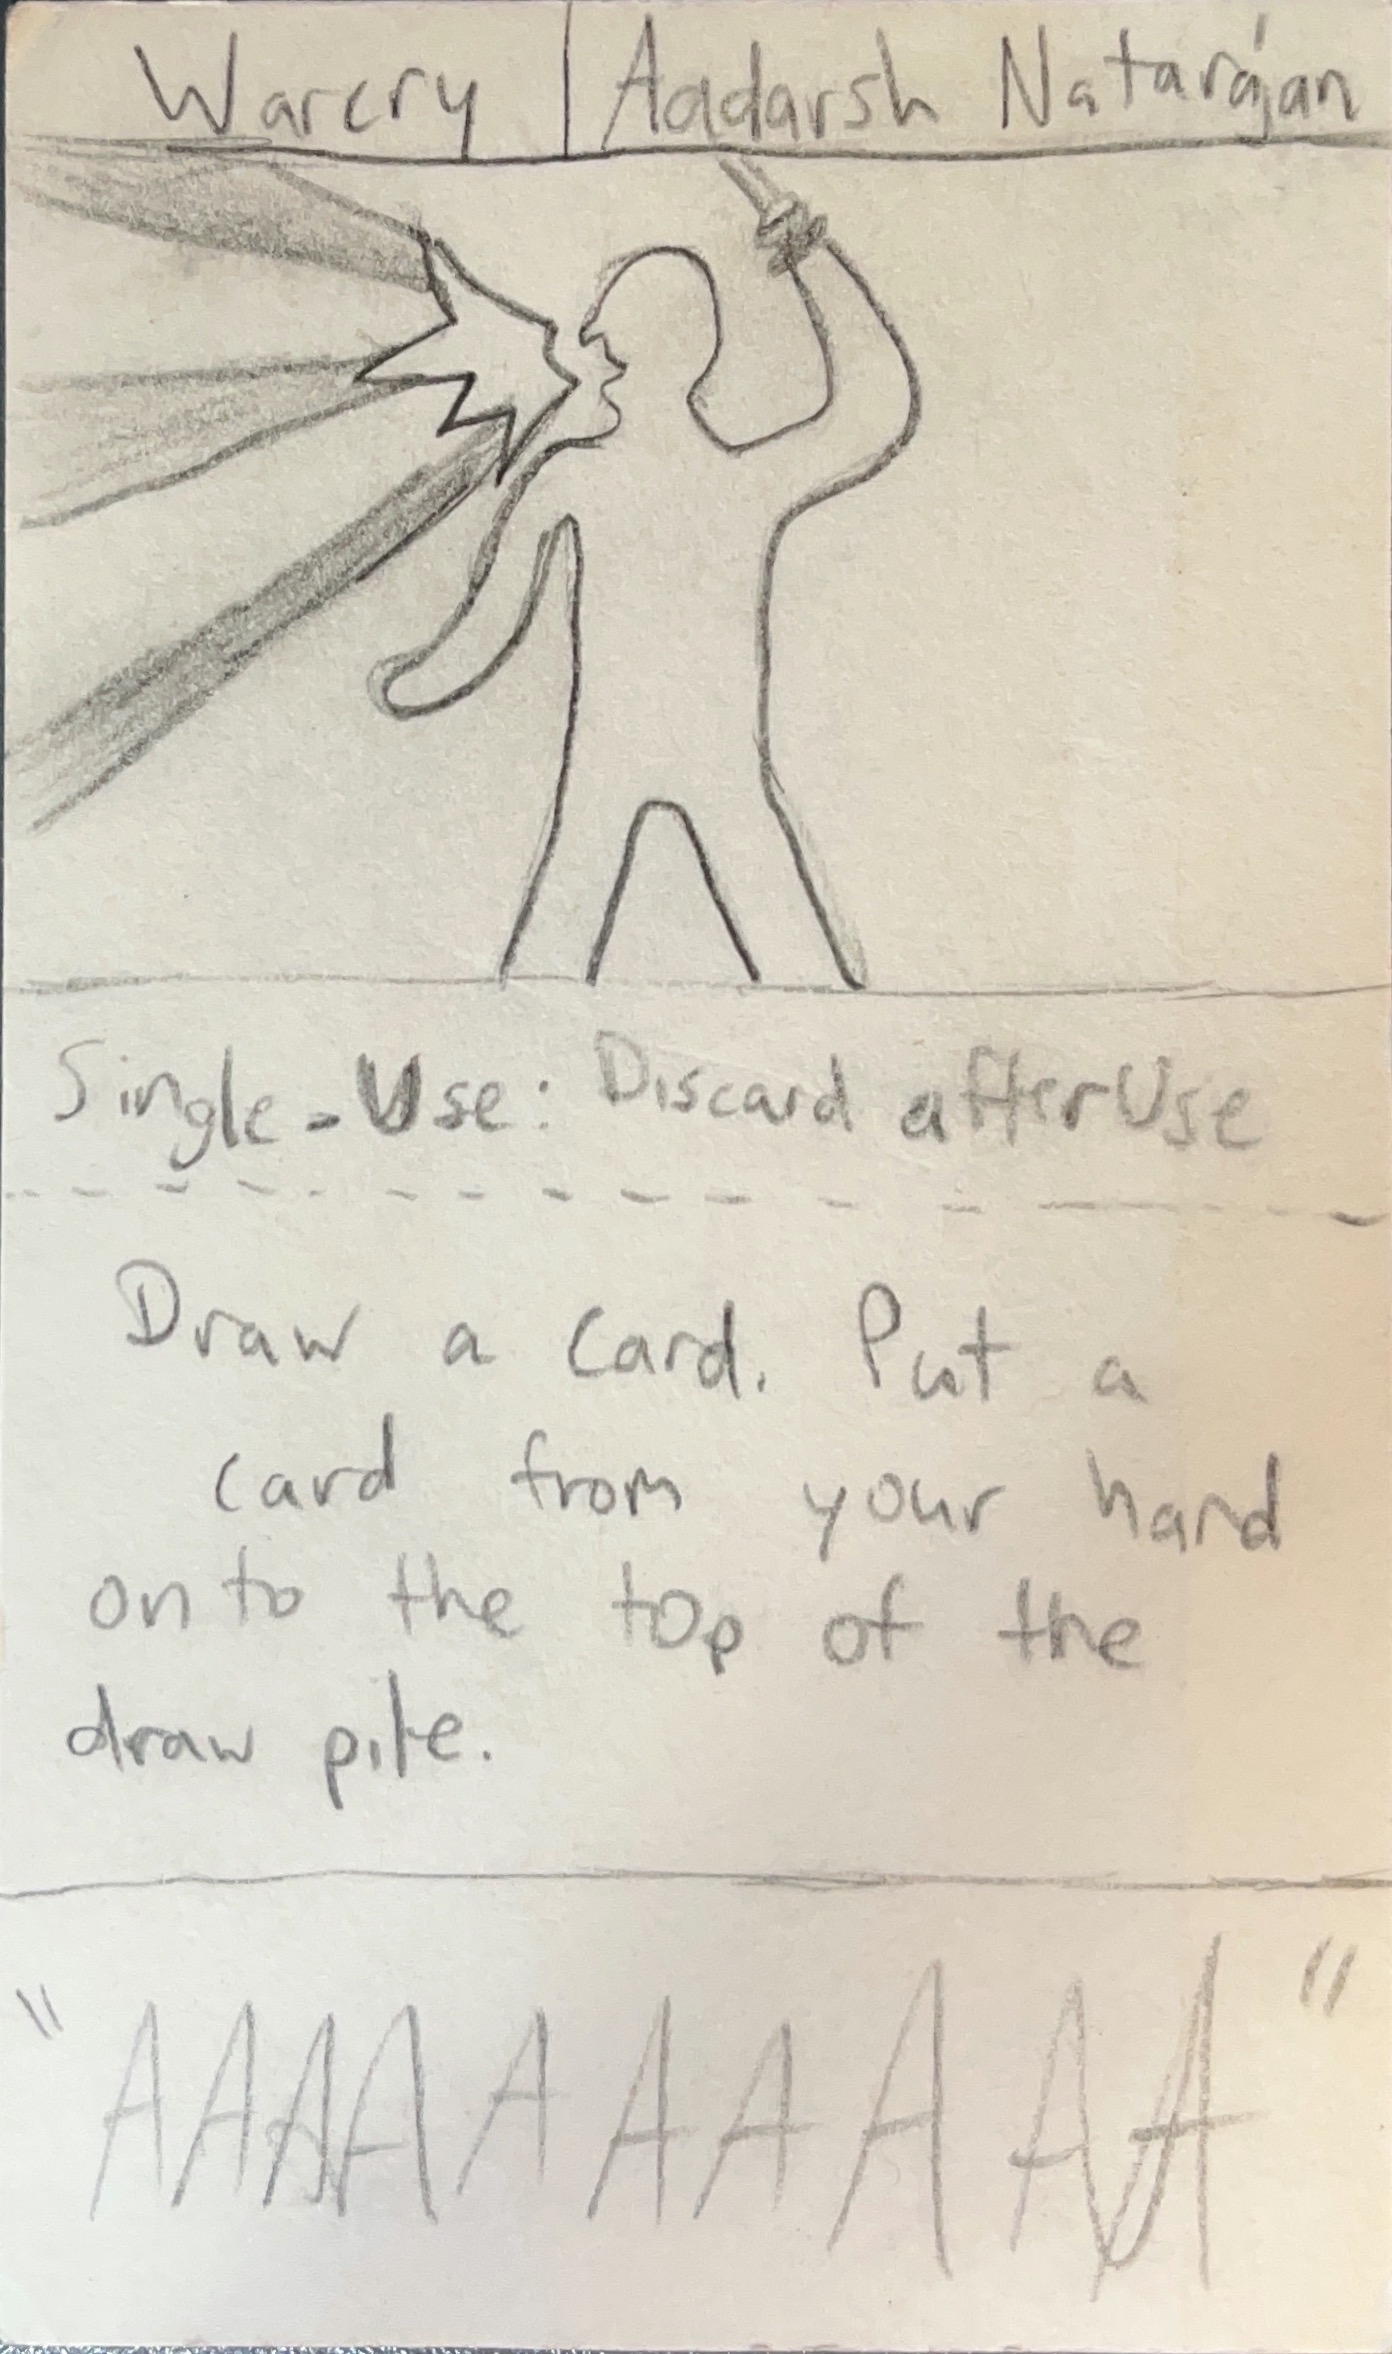 Warcry | Aadarsh Natarajan
Single-Use: Discard after Use
Draw a card. Put a
card from your hand
onto the top of the
draw pile.
"AAAAAAAAAA"